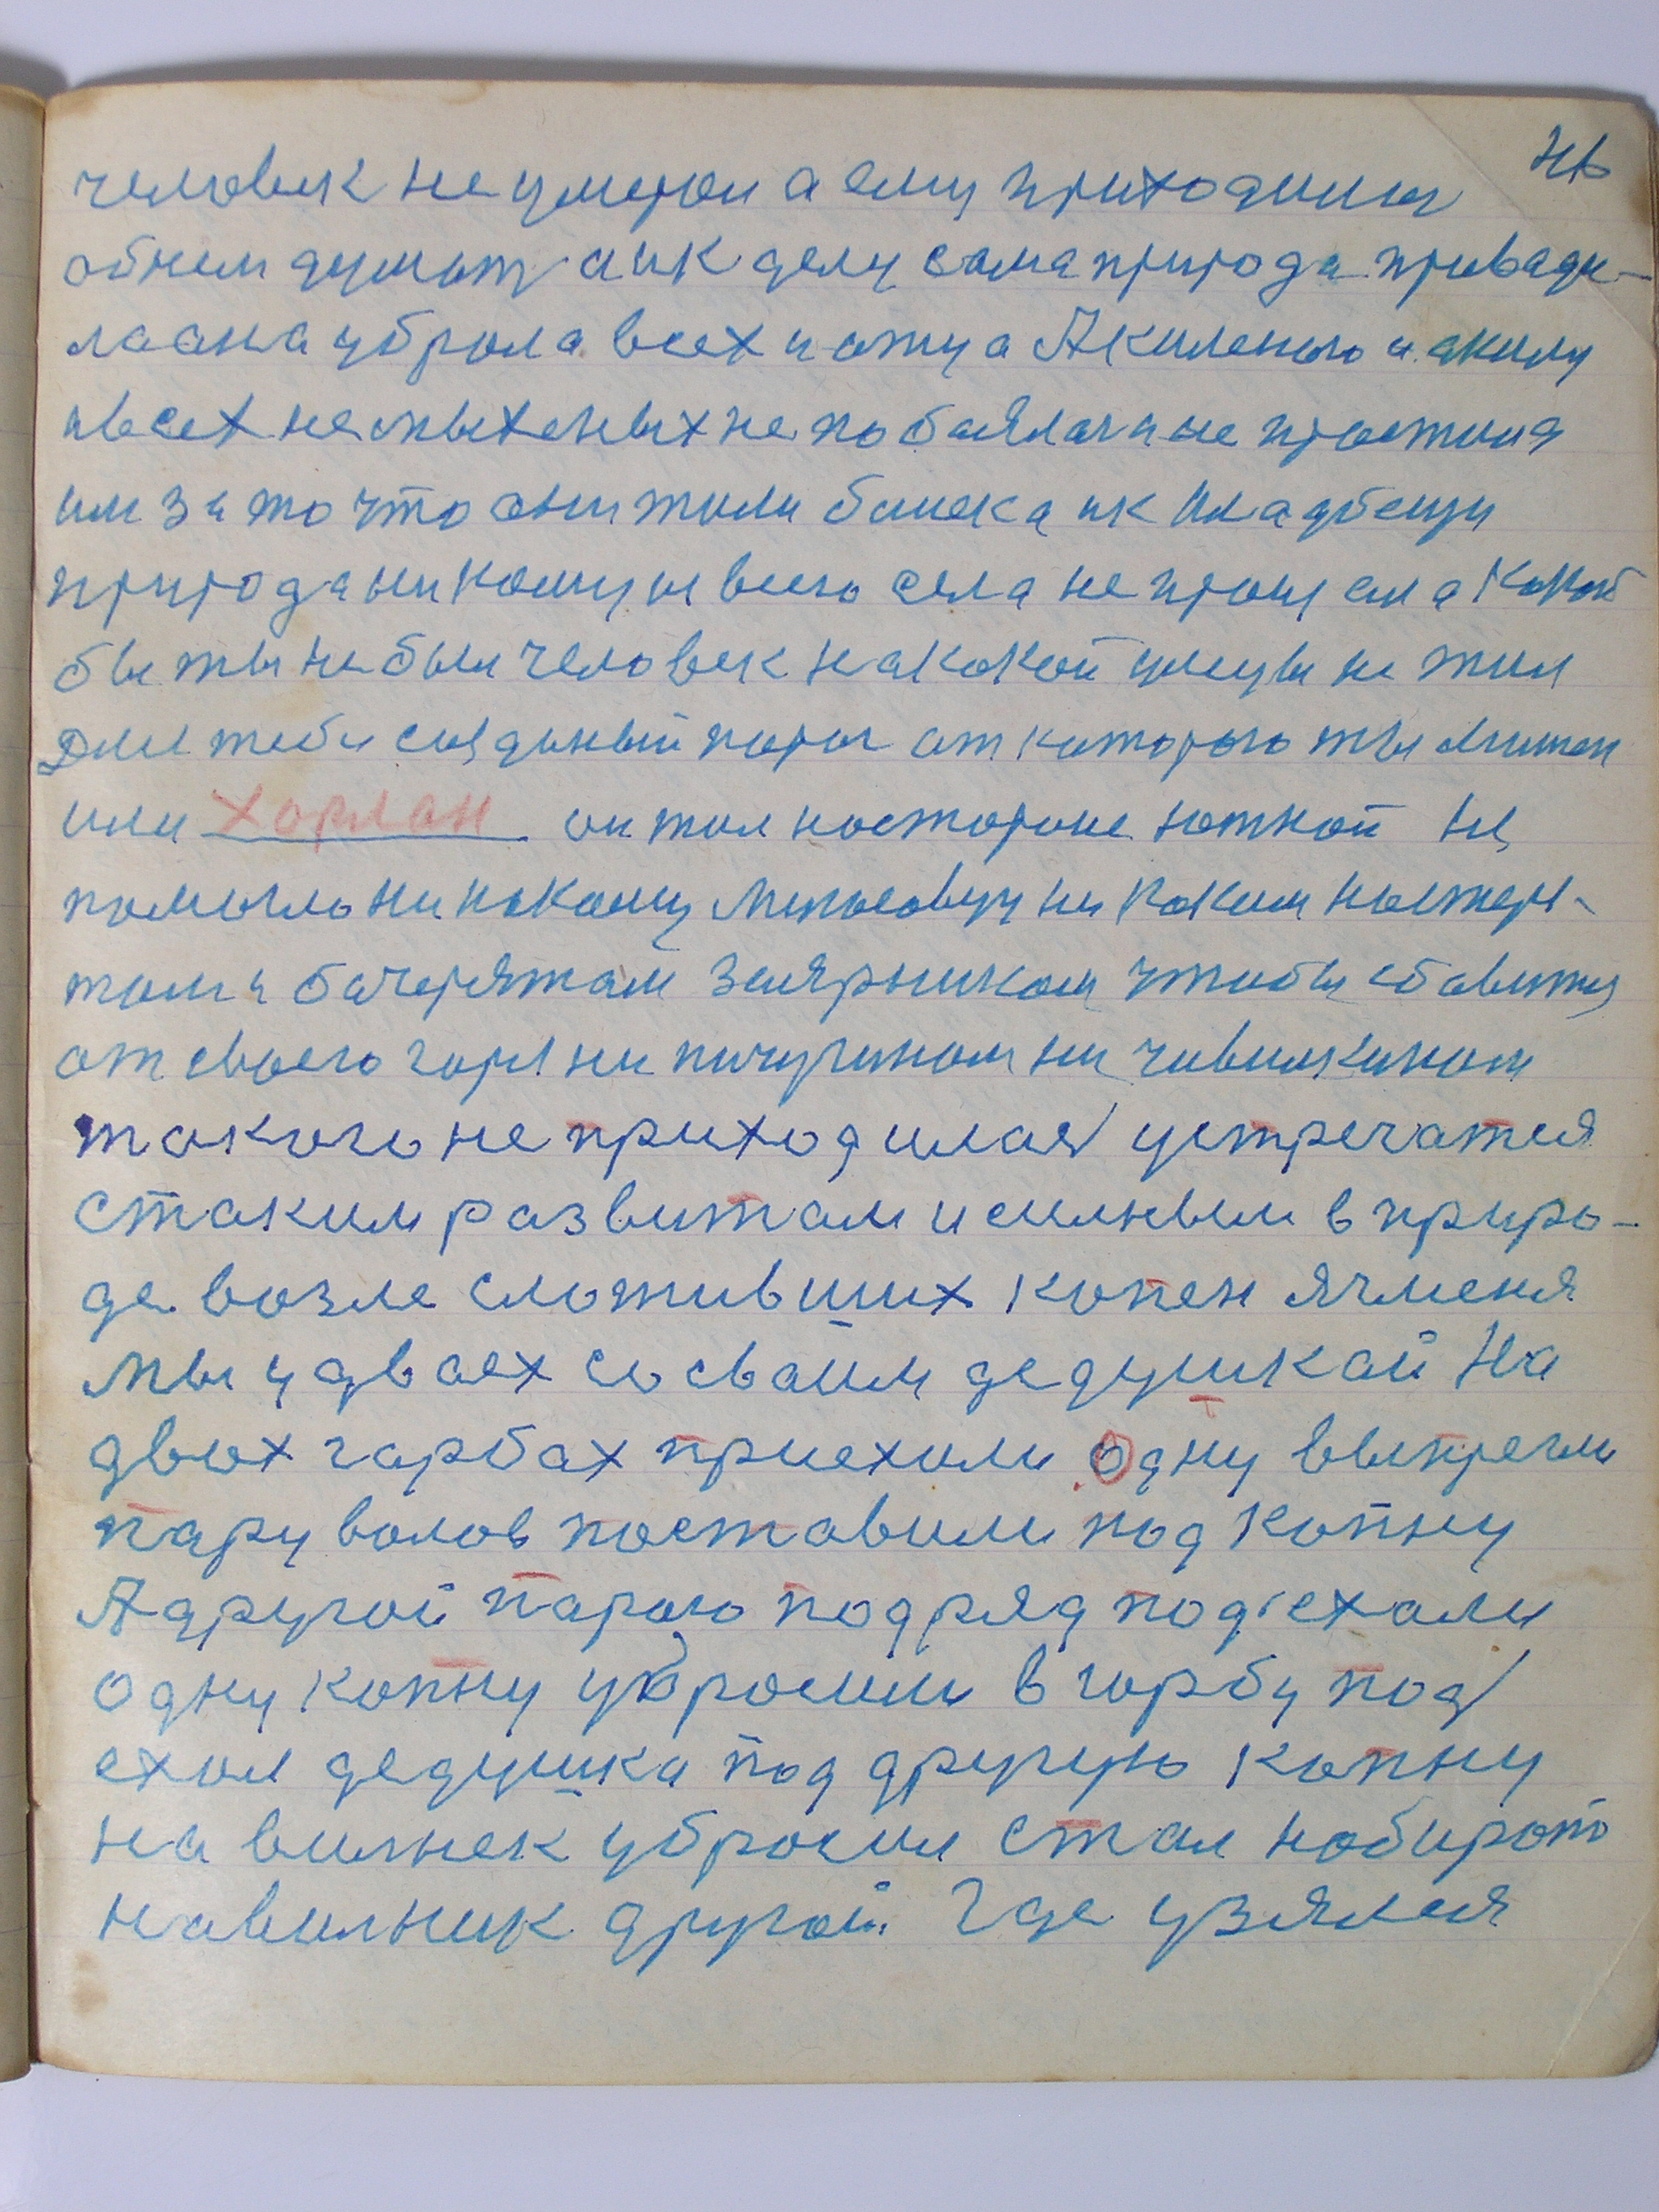 человек не умирал а ему приходилось
обнем думать а ик делу сама природа приводи-
ла ана убрала всех и отца Акиленого и акилу
и всех не
им за то что они жили блиска ик кладбещи
природа никому из всего села не прощала Какой
бы ты не был человек на какой улецы не жил
Для тебя создыный порог от которого ты
или Хорлан он жил на стороне
помогло ни какому ни каким
там и
от своего горя ни пичугиным ни
такого не приходилася устречатся
с таким развитам и силным в приро-
де возле сложивших копен ячменя
мы у двоех со сваим дедушкай на
двюх гарбах приехали одну выпрегли
пару волов поставили под копну
А другой парою подряд подъехали
одну копну убросили в гарбу под
ехал дедушка под другую копну
на вилнек убросил стал набирать
навилник другой. Где узялся